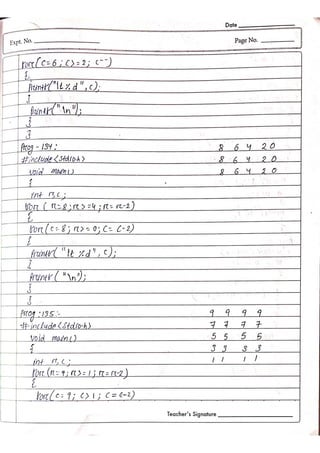 Date
Expt. No.
Page No.
for(c=6; c>=2; c--)
{
printf("\t%d", c);
}
printf("\n");
}
}
Prog - 134:
8 6 4 2 0
#include<stdio.h>
8 6 4 2 0
void main()
8 6 4 2 0
{
int r,c;
for(r=8; r>=4; r=r-2)
{
for(c=8; r>=0; c=c-2)
{
printf("\t%d", c);
}
printf("\n");
}
}
Prog:135:-
9 9 9 9
#include<stdio.h>
7 7 7 7
void main()
5 5 5 5
{
3 3 3 3
int r,c;
1 1 1 1
for(r=9; r>=1; r=r-2)
{
for(c=9; c>1; c=c-2)
Teacher's Signature